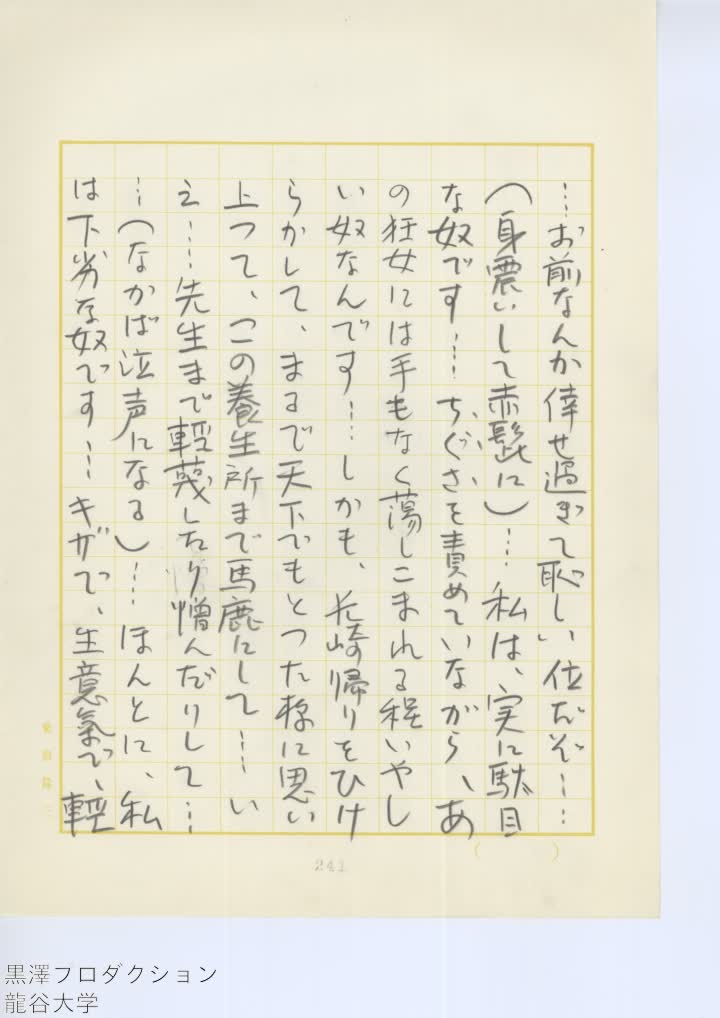 …お前なんか倖せ過ぎて恥しい位だぞ……
（身震いして赤髭に）…私は、実に駄目
な奴です……ちぐさを責めていながら、あ
の狂女には手もなく蕩しこまれる程いやし
い奴なんです……しかも、長崎帰りをひけ
らかして、まるで天下でもとつた様に思い
上つて、この養生所まで馬鹿にして……い
え……先生まで軽蔑したり憎んだりして…
…（なかば泣声になる）……ほんとに、私
は下劣な奴です……キザで、生意氣で、軽
241
黒澤プロダクション
龍谷大学